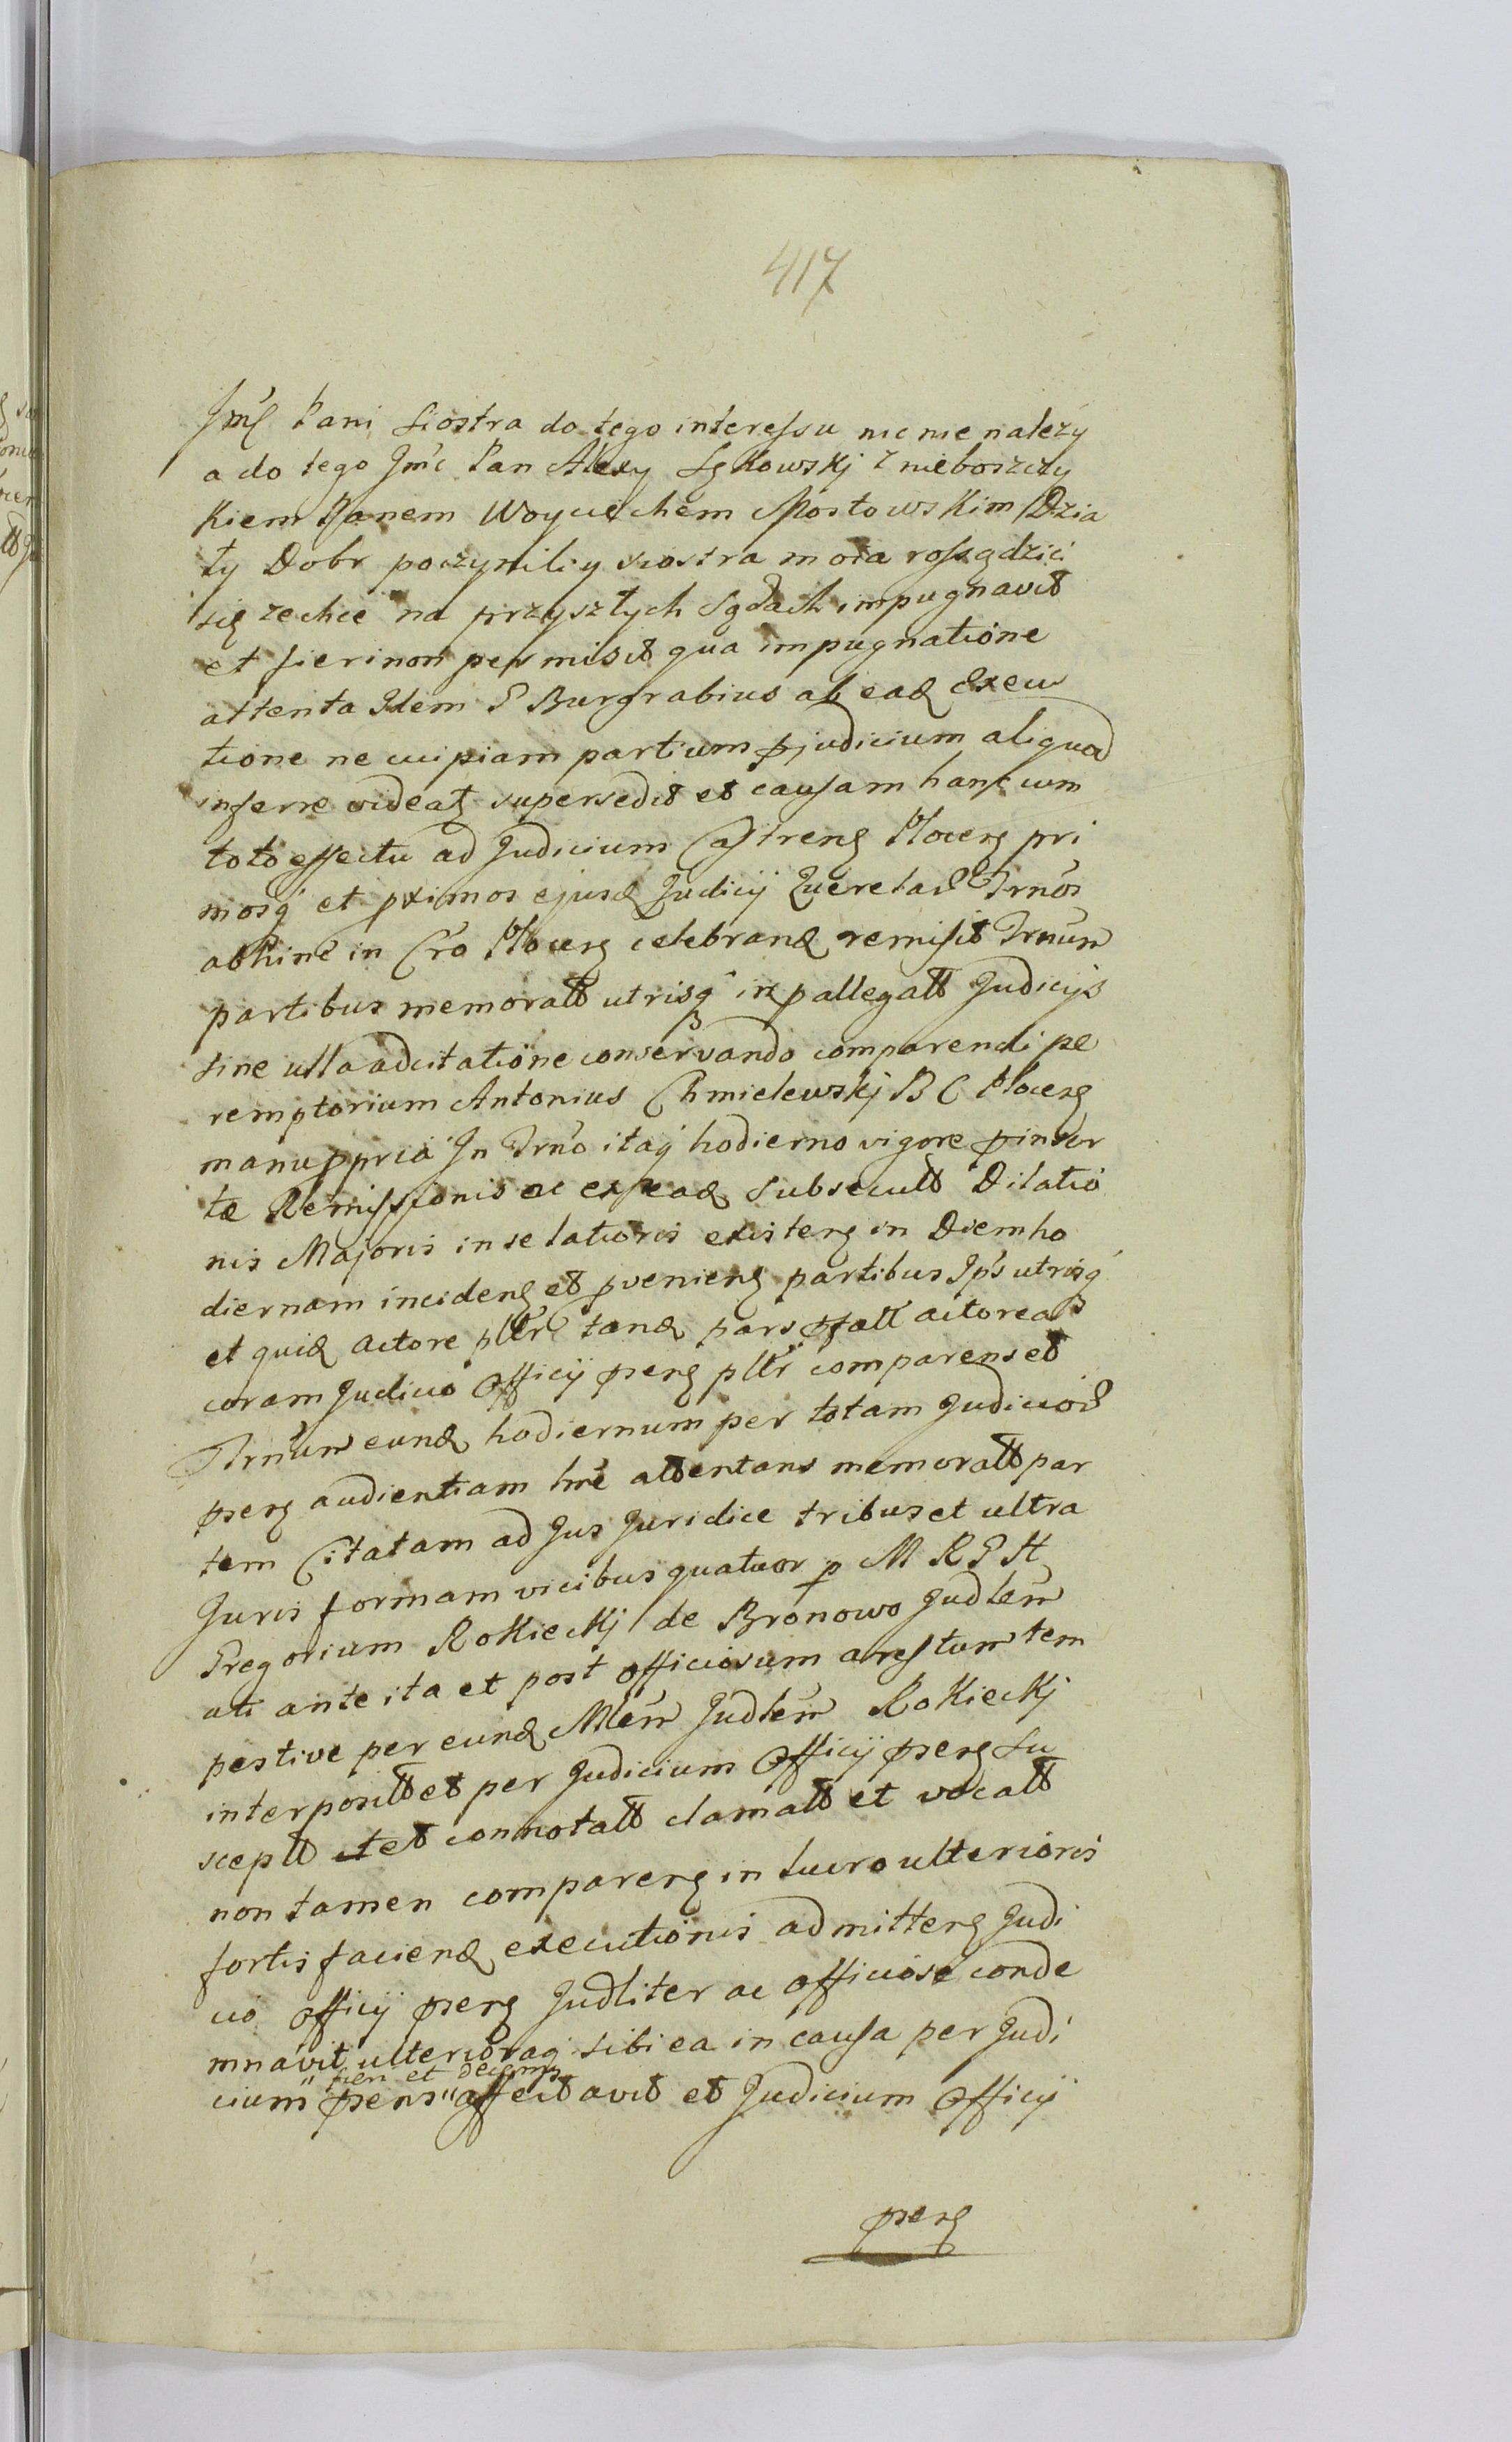 417
Jmć Pani siostra do tego interessu nic nie należy
a do tego Jmć Pan Alexy Łękowskj z nieboszczy
kiem Panem Woyciechem Mostowskim Dzia
ły Dobr poczynili y siostra moia rossądzić
się zechce na przyszłych sądach impugnavit
et fieri non permisit qua impugnatione
attenta Idem P Burgrabius ab eadꝫ Execu
tione ne cuipiam partium pjudicium aliquod
inferre videatꝫ supersedit et causam hanc cum
toto effectu ad Judicium Castrenꝫ Plocenꝫ pri
mosqꝫ et pximos ejusdꝫ Judicij Querelaꝝ Trnos
abhinc in Cro Plocenꝫ celebrandꝫ remisit Trnum
partibus memoratt utrisqꝫ in pallegatt Judicijs
sine ulla adcitatione conservando comparendi pe
remptorium Antonius Chmielewskj B C Plocenꝫ
manu ppria In Trno itaqꝫ hodierno vigore pinser
tæ Remissionis ac ex eadꝫ subsecutt Dilatio
nis Majoris in se latioris existenꝫ in Diem ho
diernam incidenꝫ et pvenienꝫ partibus Ips utrisqꝫ
et quidꝫ Actore pltr tandꝫ pars pfatt actorea
coram Judicio Officij psenꝫ pltr comparens et
Trnum eundꝫ hodiernum per totam Judicioꝝ
psenꝫ audientiam hre attentans memoratt par
tem Citatam ad Jus Juridice tribus et ultra
Juris formam vicibus quatuor p M R P H
Gregorium Rokieckj de Bronowo Judlem
uti ante ita et post officiosum arestum tem
pestive per eundꝫ Mlem Judlem Rokieckj
interposittet per Judicium Officij psenꝫ su
scept et connotatt clamatt et vocatt
non tamen comparenꝫ in lucro ulterioris
fortis faciendꝫ executionis admittenꝫ Judi
cio Officij psenꝫ Judliter ac officiose conde
mnavit ulterioraqꝫ sibi ea in causa per Judi
fieri et decerni
cium psens affectavit et Judicium Officij
psenꝫ